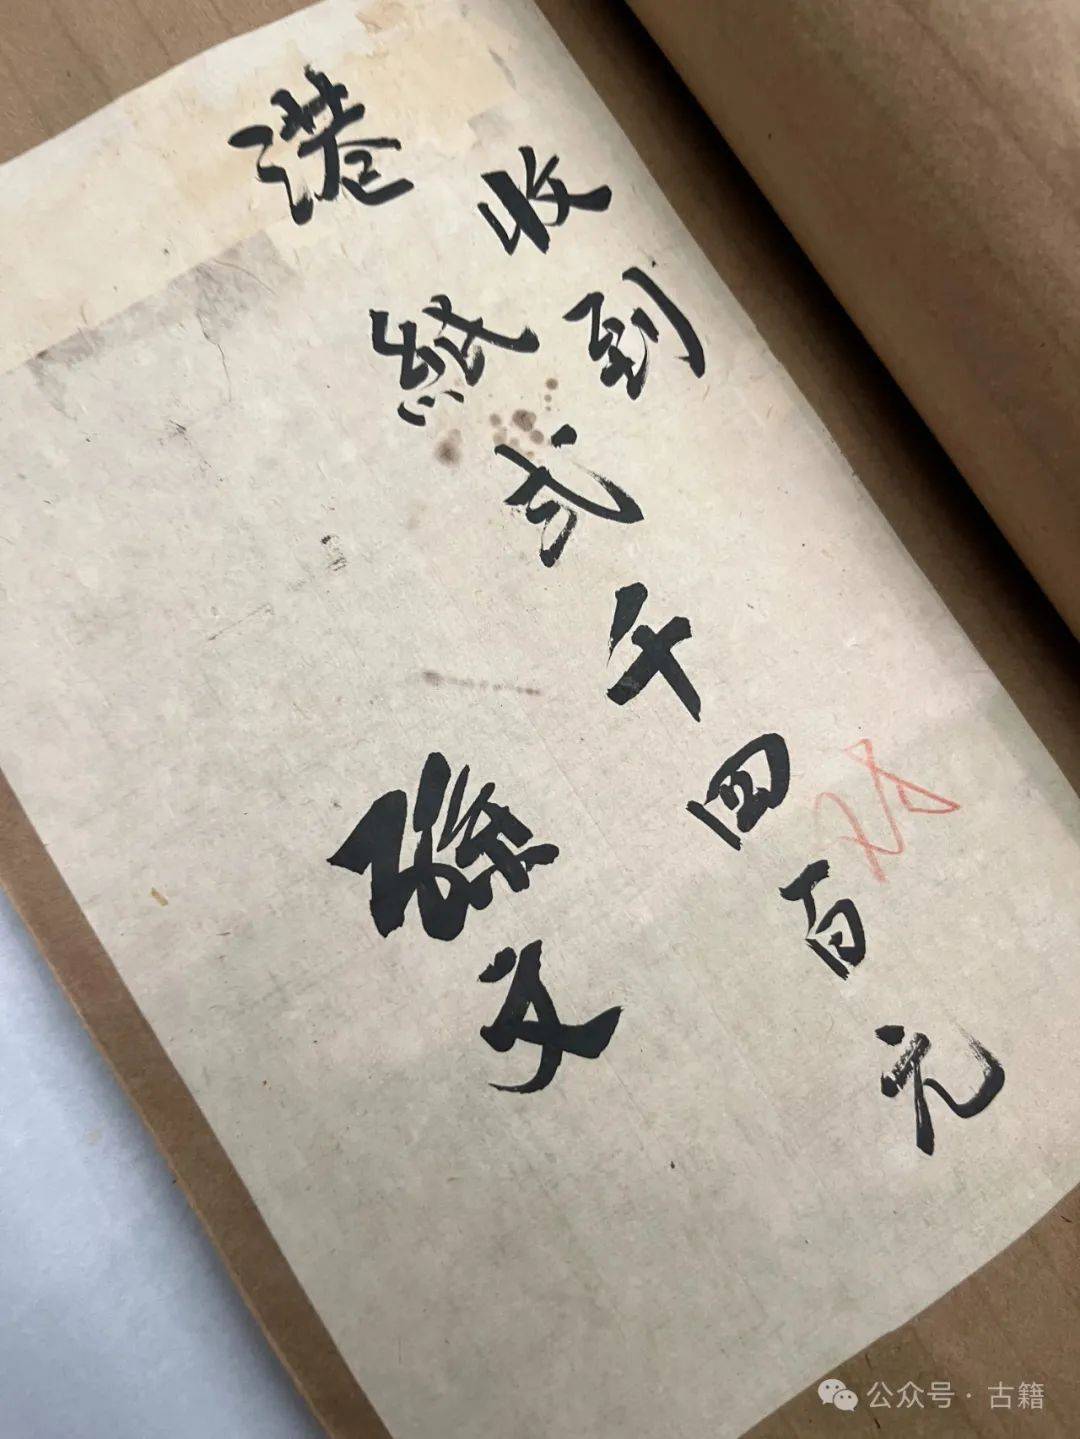 收到
港紙弍千四百元
孫文
公众号 · 古籍